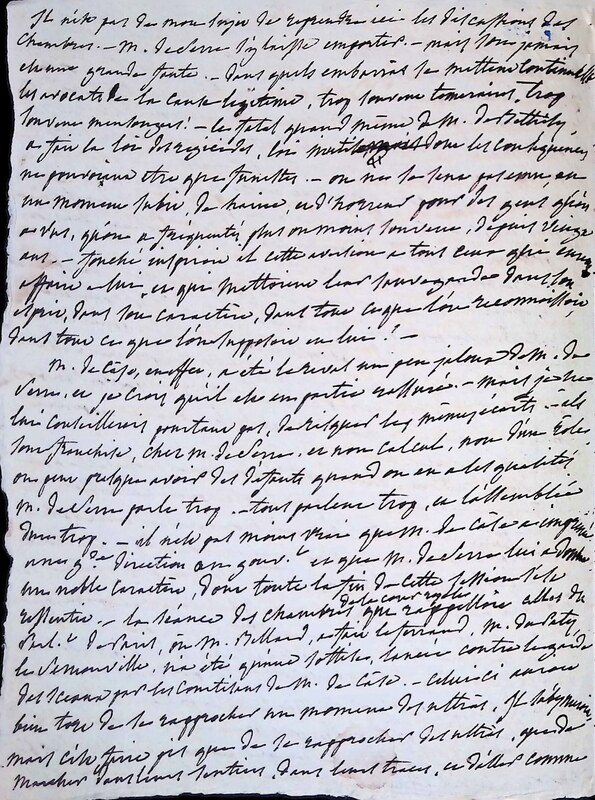 Il n'est pas de mon sujet de reprendre ici les discussions des
Chambres. – M. de Serre s'y laisse emporter. – mais son jamais
est une grande faute. – dans quels embarras se mettent continuellement
les avocats de la cause légitime, trop souvent temeraires, trop
souvent mensongers! – le fatal quand même de M. de
a fait la loi des regicides, loi dont les conséquences
ne pouvoient etre que funestes. – on ne se sent pas comme au
un moment subit, de haine, et d'horreur pour des gens qu'on
a vus, qu'on a frequentés plus ou moins souvent, depuis vingt
ans. – fouché inspiroit cette aversion a tous ceux qui eurent
affaire a lui, et qui mettoient leur sauvegarde dans son
esprit, dans son caractère, dans tout ce que l'on reconnoissoit,
dans tout ce que l'on supposoit en lui! –
M. de Caze, en effet, a été le rival un peu jaloux de M. de
Serre, et je crois qu'il est en partie – mais je ne
lui conseillerois pourtant pas, de risquer les mêmes écarts – ils
sont franchise, chez M. de Serre. et non calcul, non d'un rôle.
on peut presque avoir des défauts quand on en a les qualités
M. de Serre parle trop. – tous parlent trop, et l'assemblée
dure trop. – il n'est pas moins vrai que M. de Caze a imprimé
une gde direction au gouvt et que M. de Serre lui a donné
un noble caractère, dont toute la fin de cette session s'est
ressentie. – la séance des chambres de la cour royale que rappelloit celles du
Parlt de Paris, où M. Bellard, a fait le ferrand, M. du Paty,
le , n'a été qu'une sottise, lancée contre le garde
des sceaux par les comitions de M. de Caze. – celui-ci auroit
bien tort de se rapprocher un moment des ultras. Il s'abymeroit,
mais c'est pire que de se rapprocher des ultras, que de
marcher dans leurs sentiers, dans leurs traces, et d'aller comme